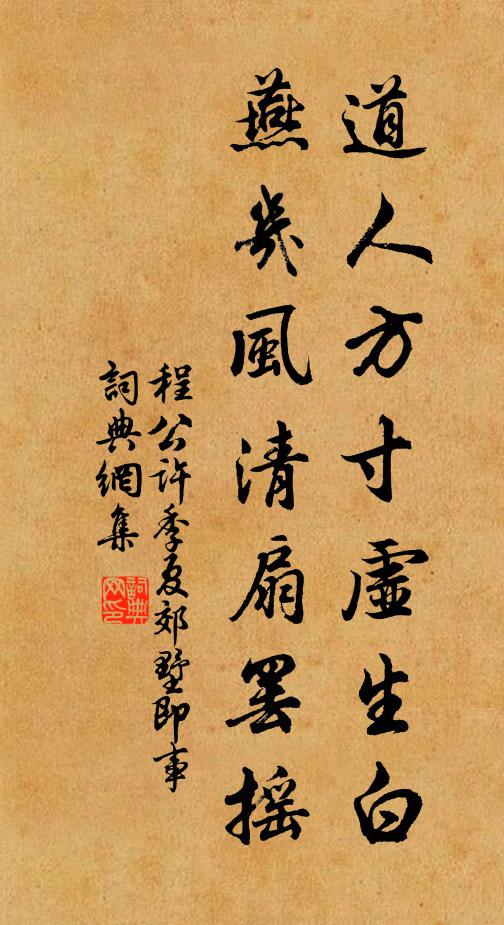 道人方寸虛生白
燕几風清扇罷搖
程公許季夏郊墅即事
詞典網集
詞典網印